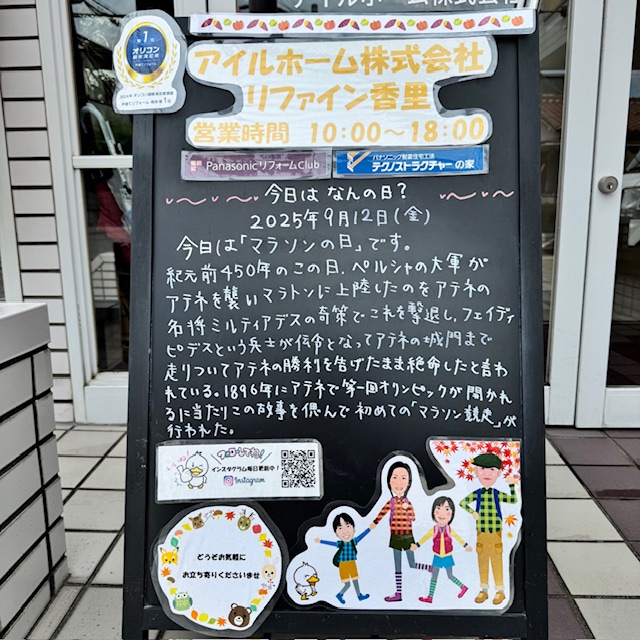 アイルホーム株式会社
オリコン
アイルホーム株式会社
リファイン香里
営業時間 10:00～18:00
Panasonic リフォーム Club
パナソニック耐震住宅工法
テクノストラクチャーの家
今日は なんの日?
2025年9月12日(金)
今日は「マラソンの日」です。
紀元前450年のこの日、ペルシャの大軍が
アテネを襲いマラトンに上陸したのをアテネの
名将ミルティアデスの奇策でこれを撃退し、フェイディ
ピデスという兵士が伝令となってアテネの城門まで
走りついてアテネの勝利を告げたまま絶命したと言わ
れている。1896年にアテネで第一回オリンピックが開かれ
るに当たりこの故事を偲んで初めての「マラソン競走」が
行われた。
インスタグラム毎日更新中!
Instagram
どうぞお気軽に
お立ち寄りくださいませ